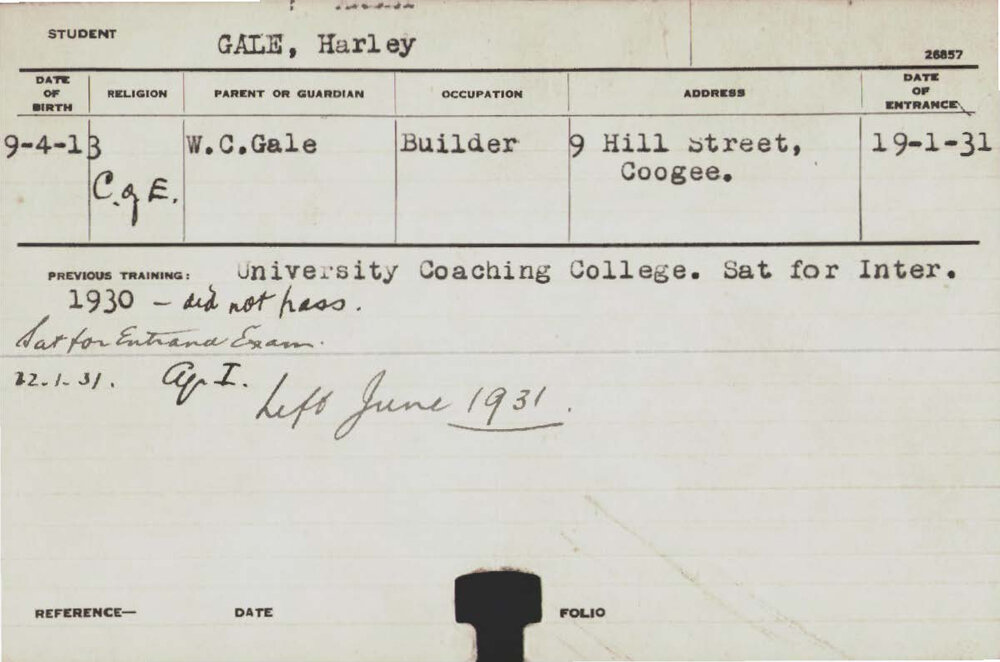 STUDENT
GALE, Harley
26857
DATE OF BIRTH
RELIGION
PARENT OR GUARDIAN
OCCUPATION
ADDRESS
DATE OF ENTRANCE
9-4-13
C. of E.
W.C.Gale
Builder
9 Hill Street,
Coogee.
19-1-31
PREVIOUS TRAINING: University Coaching College. Sat for Inter.
1930 - did not pass.
Sat for Entrance Exam.
22.1.31. Ag. I.
Left June 1931.
REFERENCE—
DATE
FOLIO